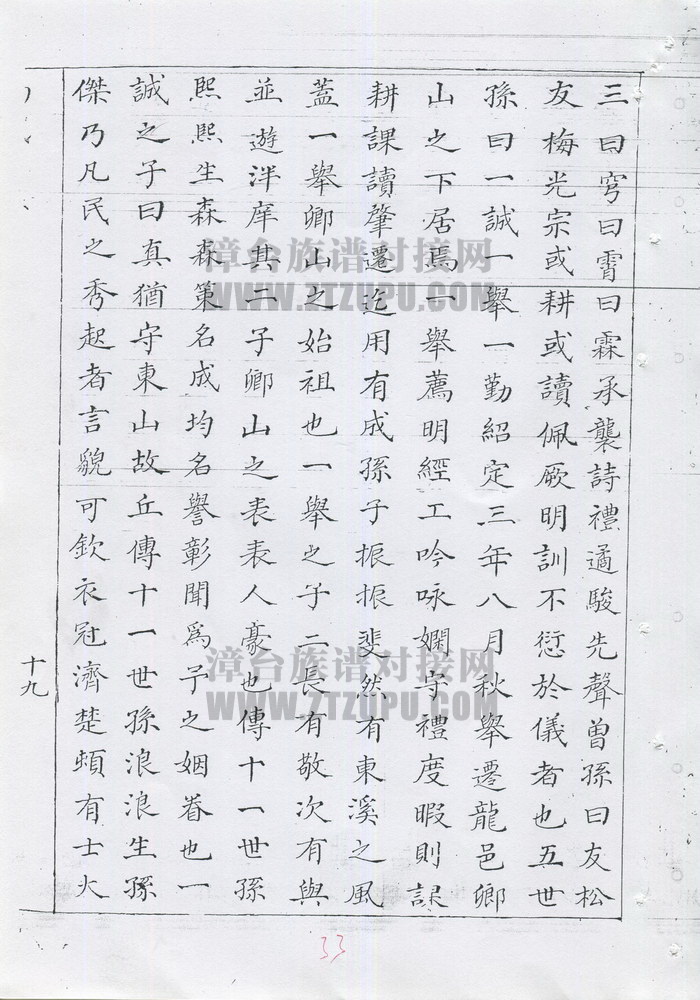 三曰穹曰霄曰霖承襲詩禮遹駿先聲曾孫曰友松
友梅光宗或耕或讀佩厥明訓不愆於儀者也五世
孫曰一誠一舉一勤紹定三年八月秋舉遷龍邑卿
山之下居焉一舉薦明經工吟咏嫻守禮度暇則課
耕課讀肇遷迄用有成孫子振振斐然有東溪之風
蓋一舉卿山之始祖也一舉之子二長有敬次有與
並遊泮庠其二子卿山之表表人豪也傳十一世孫
熙熙生森森策名成均名譽彰聞爲予之姻眷也一
誠之子曰真猶守東山故丘傳十一世孫浪浪生孫
傑乃凡民之秀起者言貌可欽衣冠濟楚頓有士大
十九
33
漳台族谱对接网
WWW.ZTZUPU.COM
漳台族谱对接网
WWW.ZTZUPU.COM